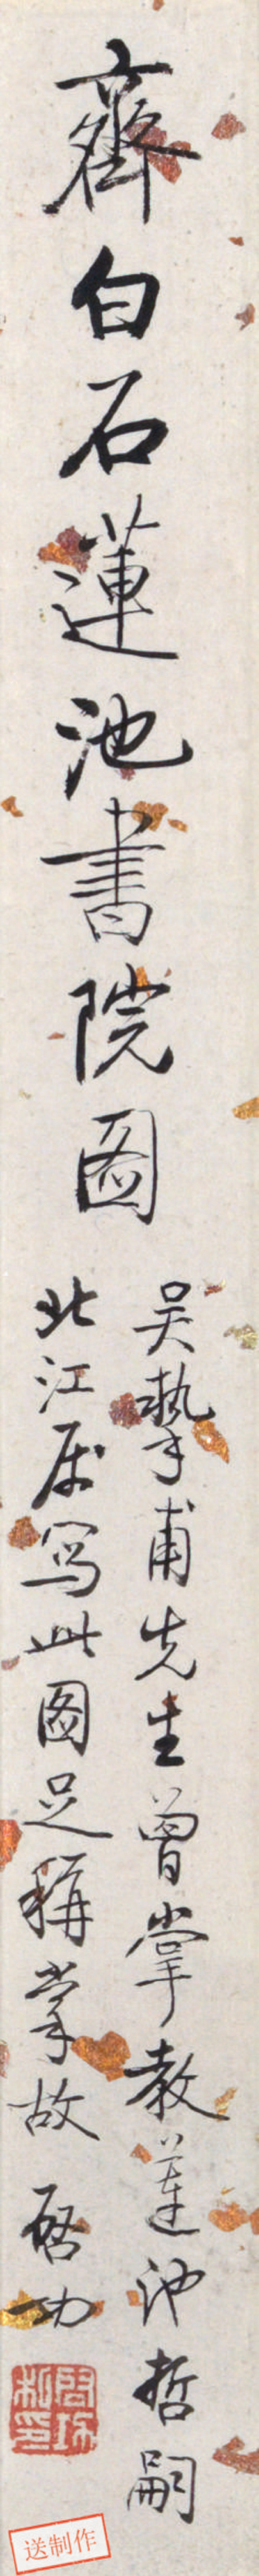 齊白石蓮池書院圖
吴摯甫先生曾掌教蓮池哲嗣
北江属寫此圖足稱掌故 啓功
啓功私印
送制作